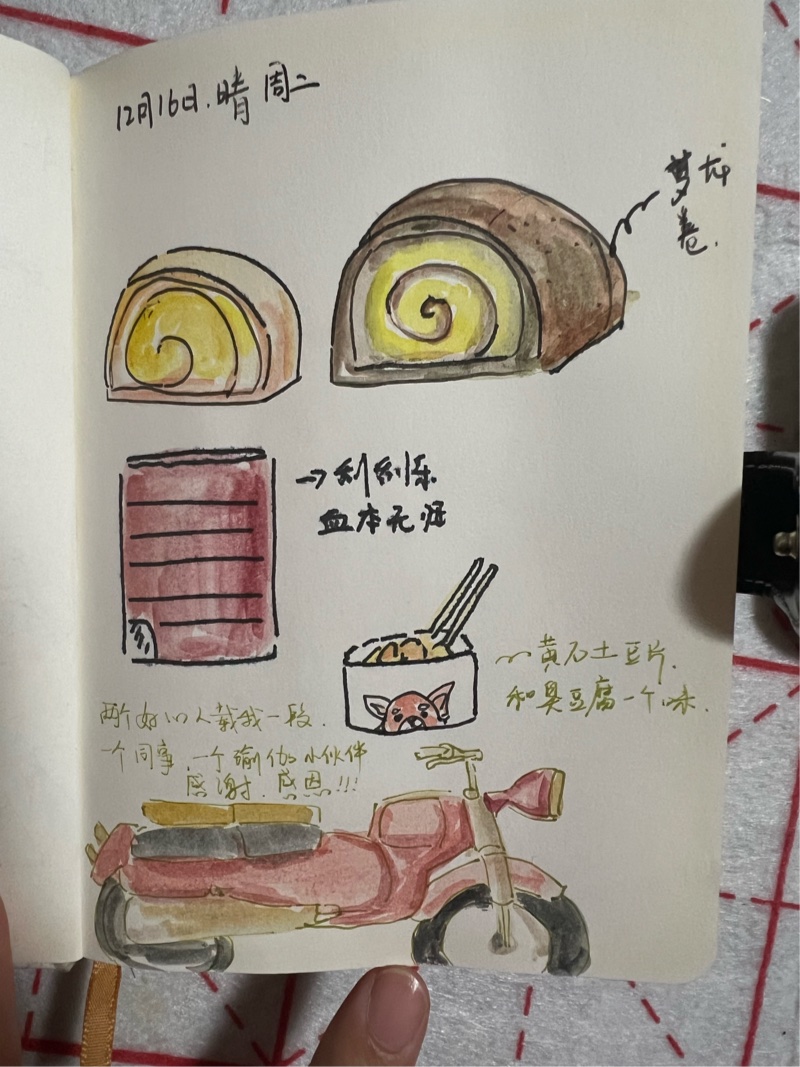 12月16日.晴 周二
梦龙
卷.
→刮刮乐
血本无归
~黄石土豆片.
和臭豆腐一个味.
两个好心人载我一段.
一个同事.一个瑜伽小伙伴
感谢.感恩!!!